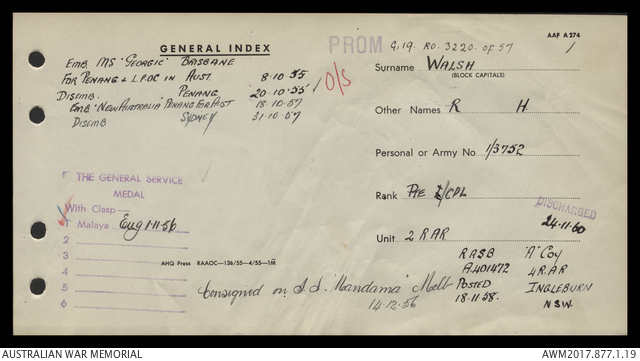 AAF A 274
GENERAL INDEX
PROM
G.19. RO. 3220. OF 57
1
EMB. MS "GEORGIC" BRISBANE
FOR PENANG & LPOC IN AUST. 8·10·55
DISEMB. PENANG 20·10·55
O/S
EMB "NEW AUSTRALIA" PENANG FOR AUST 18·10·57
DISEMB SYDNEY 31·10·57
Surname WALSH
(BLOCK CAPITALS)
Other Names R H
Personal or Army No 1/3752
Rank PTE /CPL
DISCHARGED
24·11·60
Unit 2 RAR
RASB "A" COY
A401472 4 RAR
POSTED INGLEBURN
18·11·58. NSW.
THE GENERAL SERVICE
MEDAL
With Clasp
1 Malaya Eng 1·11·56
2
3
4
5
6
AHQ Press RAAOC—136/55—4/55—1M
Consigned on S.S. "Mandama" Melb
14·12·56
AUSTRALIAN WAR MEMORIAL
AWM2017.877.1.19